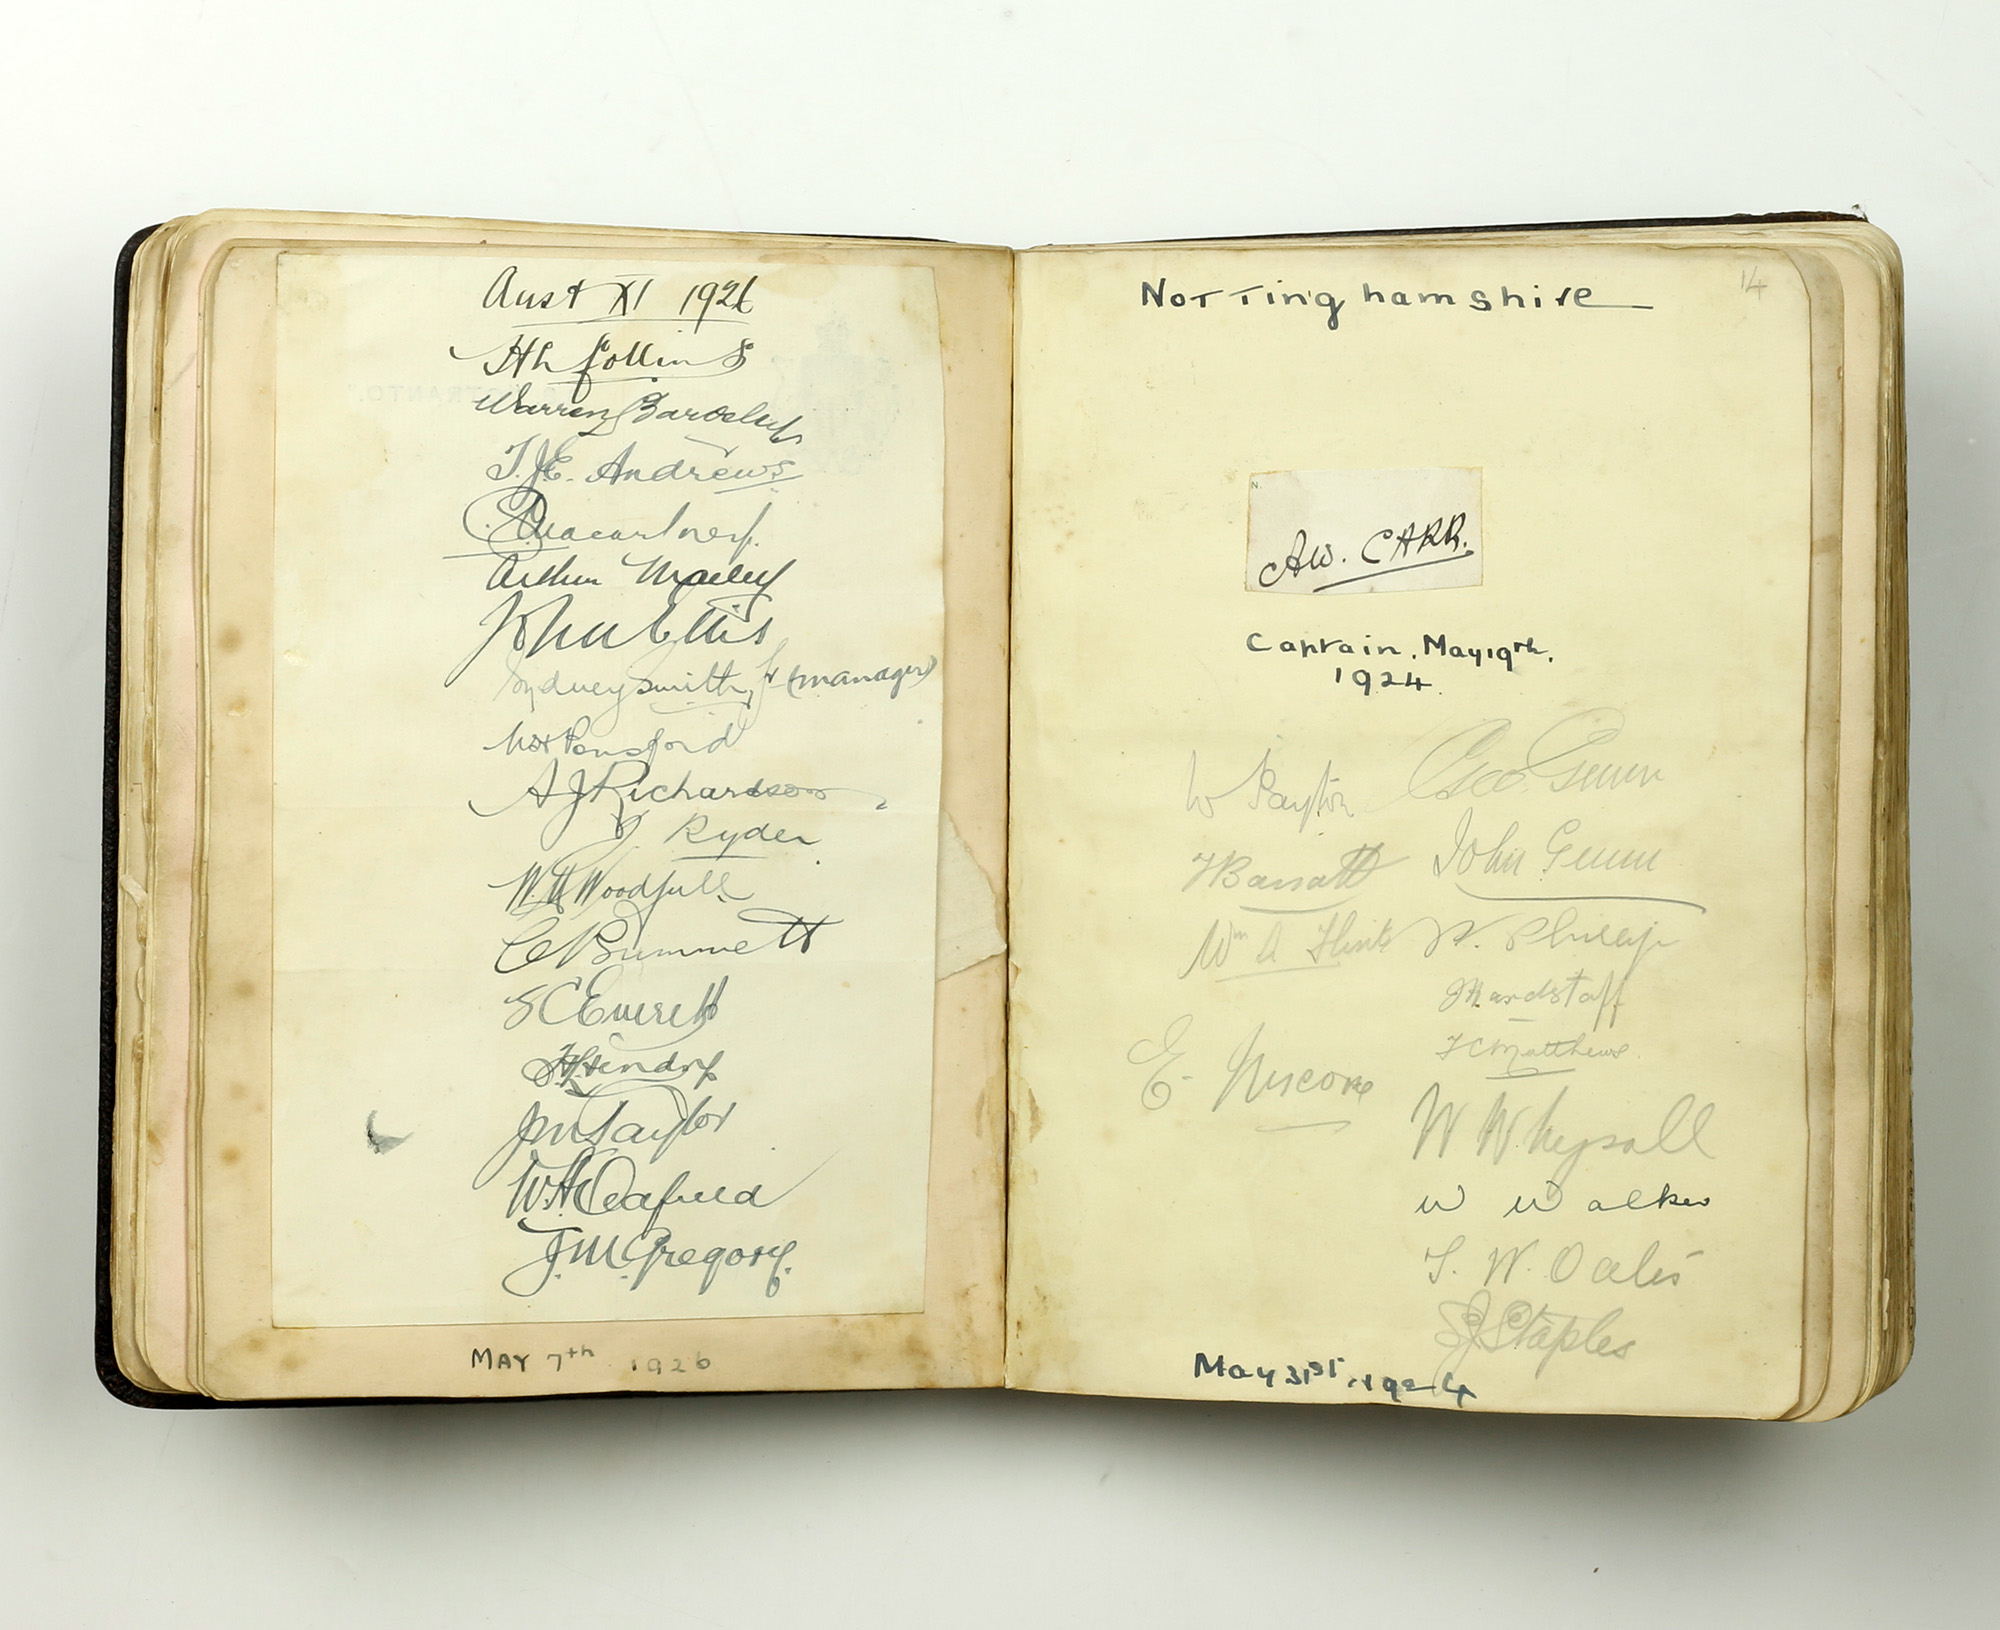 Aust XI 1926
H L Collins
Warren Bardsley
T.J.E. Andrews
C.G. Macartney.
Arthur Mailey
John Ellis
Sydney Smith, Jr (manager)
WH Ponsford
A J Richardson
J Ryder
W.M Woodfull
C V Grimmett
S C Everett
H.L Hendry
J M Taylor
W.A Oldfield
J.M. Gregory.
MAY 7th 1926
14
Nottinghamshire
N.
AW. CARR.
Captain. May 19th.
1924.
W Payton
Geo Gunn
F Barratt
John Gunn
Wm A Flint
J Hardstaff
F C Matthews
E.
W Whysall
W Walker
T. W. Oates
S J Staples
May 31st. 1924